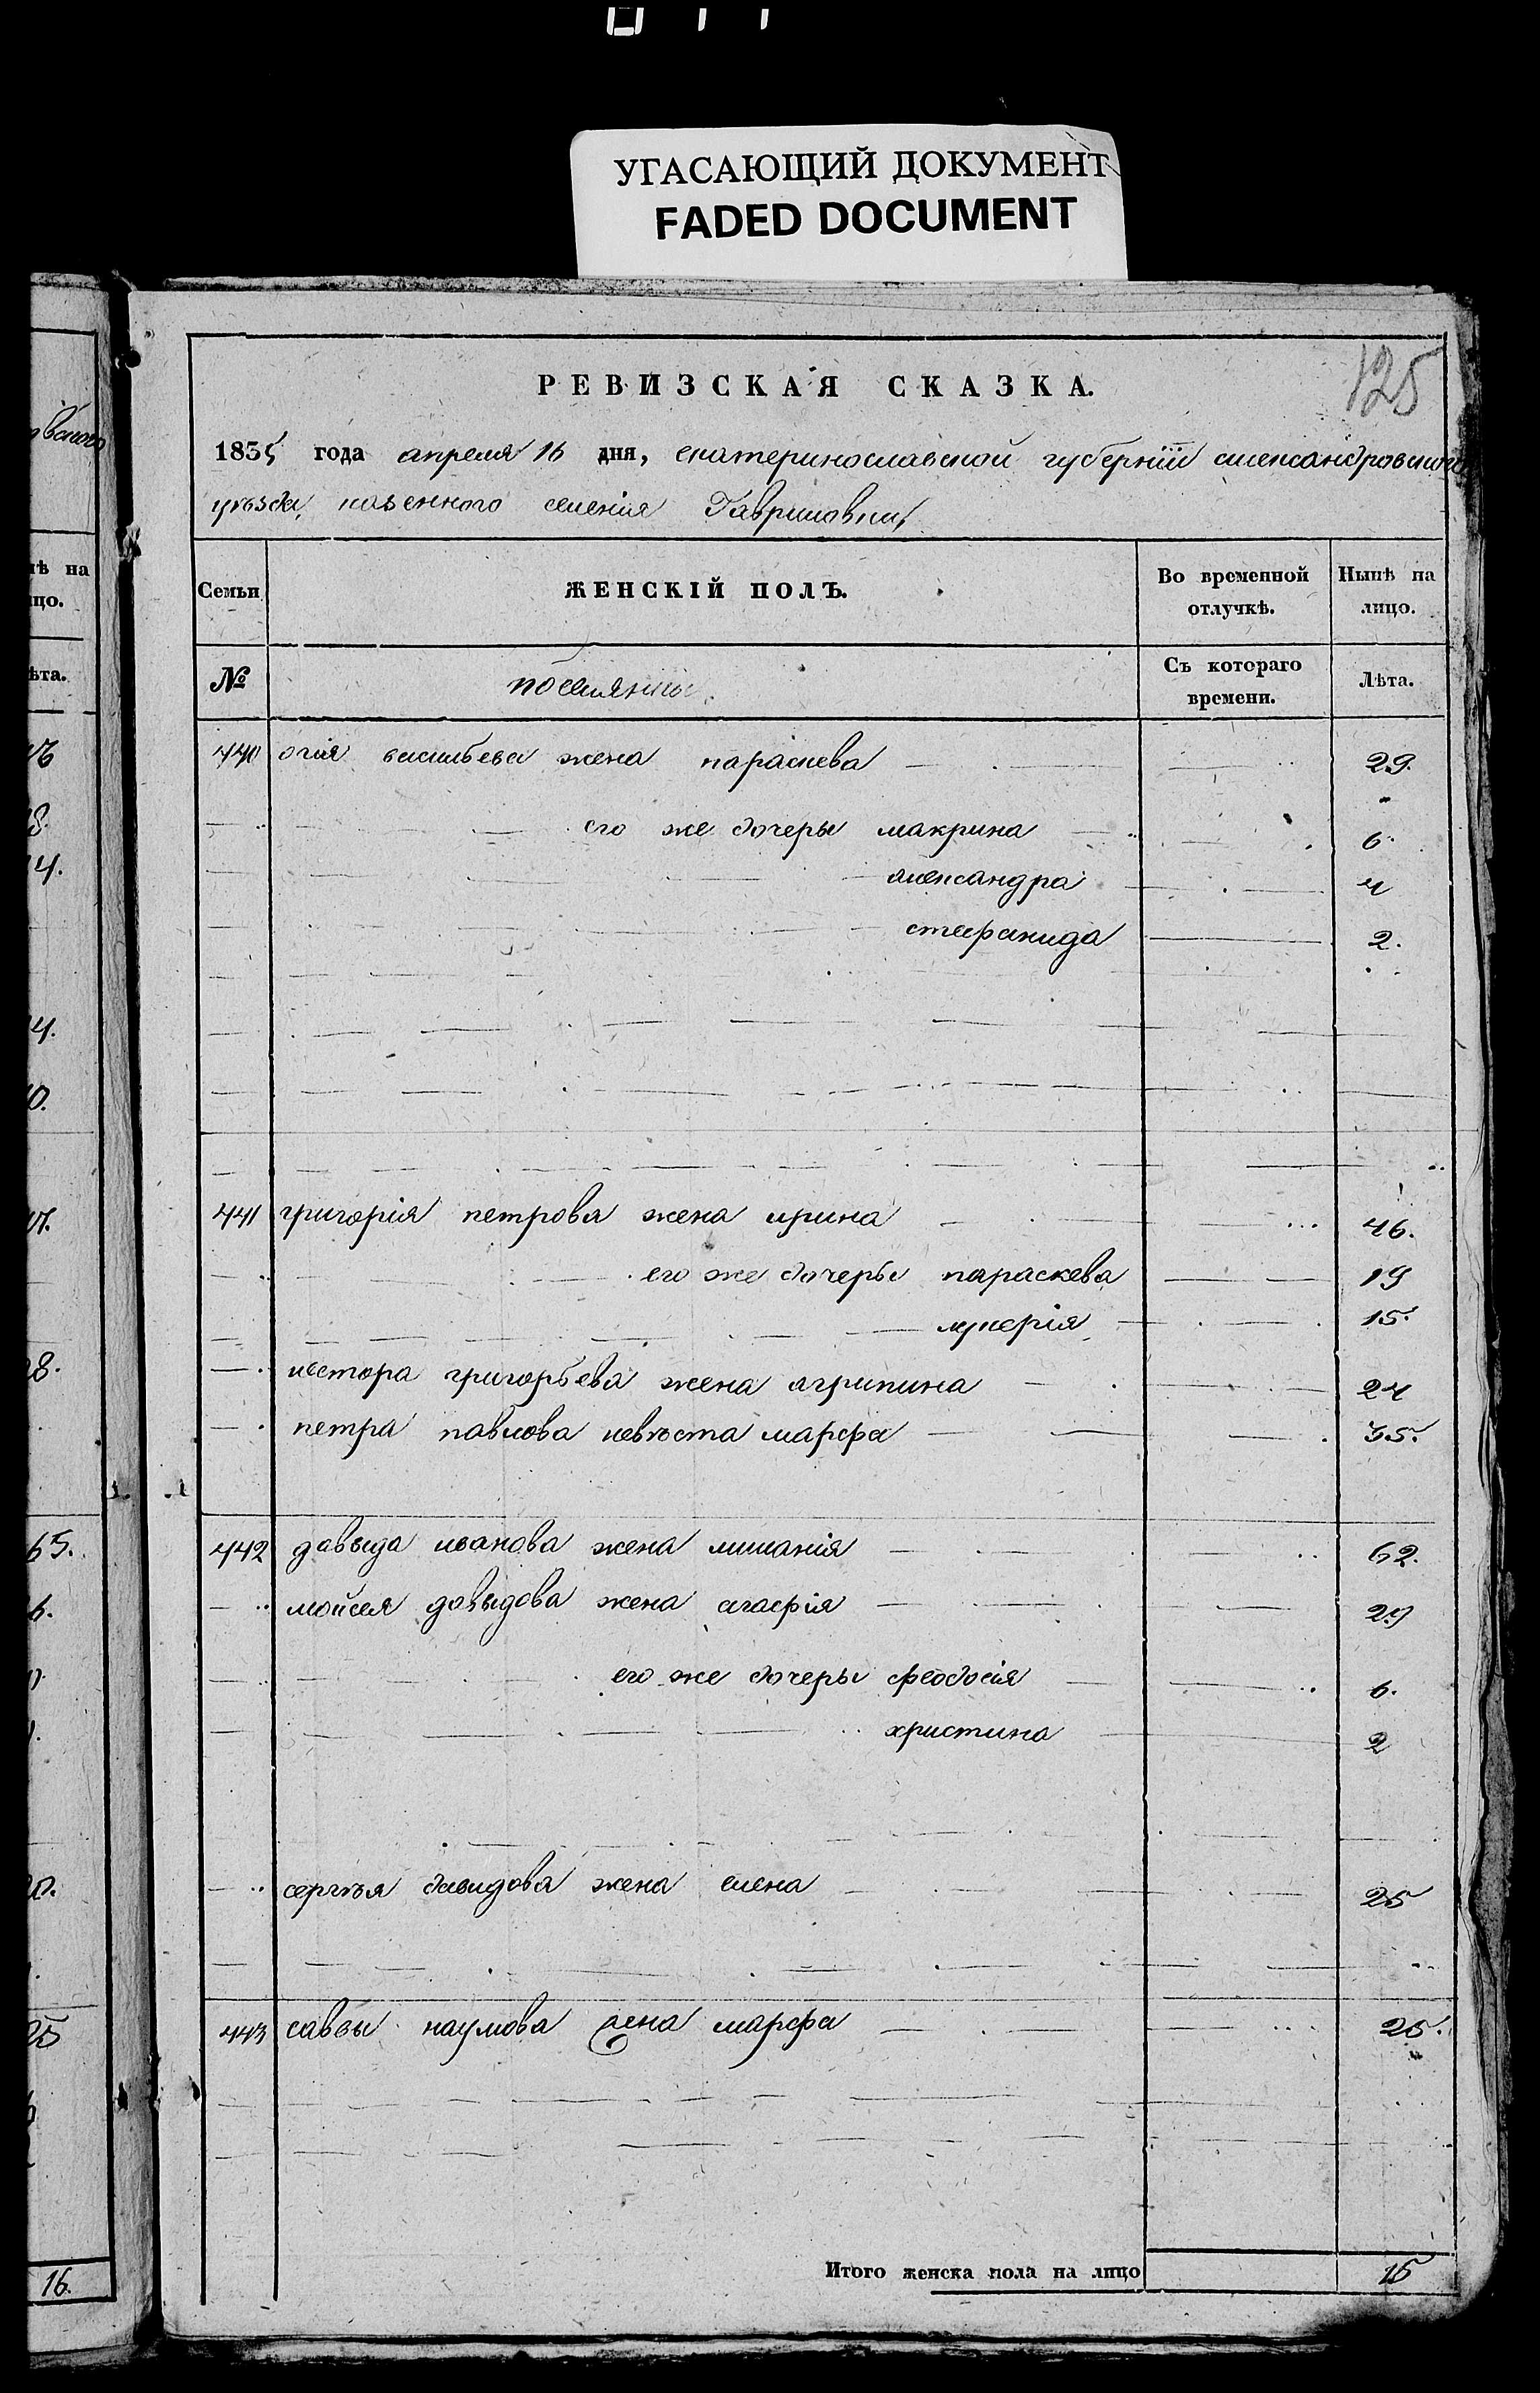 УГАСАЮЩИЙ ДОКУМЕНТ
FADED DOCUMENT
125
РЕВИЗСКАЯ СКАЗКА.
1835 года апреля 16 дня, екатеринославской губерніи александровского
уѣзда, казенного селенія Гавриловки
Семьи ЖЕНСКІЙ ПОЛЪ. Во временной отлучкѣ. Нынѣ на лицо.
№ поселянны Съ котораго времени. Лѣта.
440 васильева жена параскева 29.
его же дочеры макрина 6.
александра 4
стефанида 2.
441 григорія петрова жена ирина 46.
его же дочеры параскева 19
лукерія 15.
нестора григорьева жена агрипина 24
петра павлова невѣста марфа 35.
442 давыда иванова жена миланія 62.
мойсея давыдова жена агафія 29
его же дочеры феодосія 6.
христина 2
сергѣя давидова жена елена 25
443 саввы наумова жена марфа 25.
Итого женска пола на лицо 15
ѣ на
цо.
ѣта.
8.
4.
4.
0.
8.
65.
6.
0.
25
16.